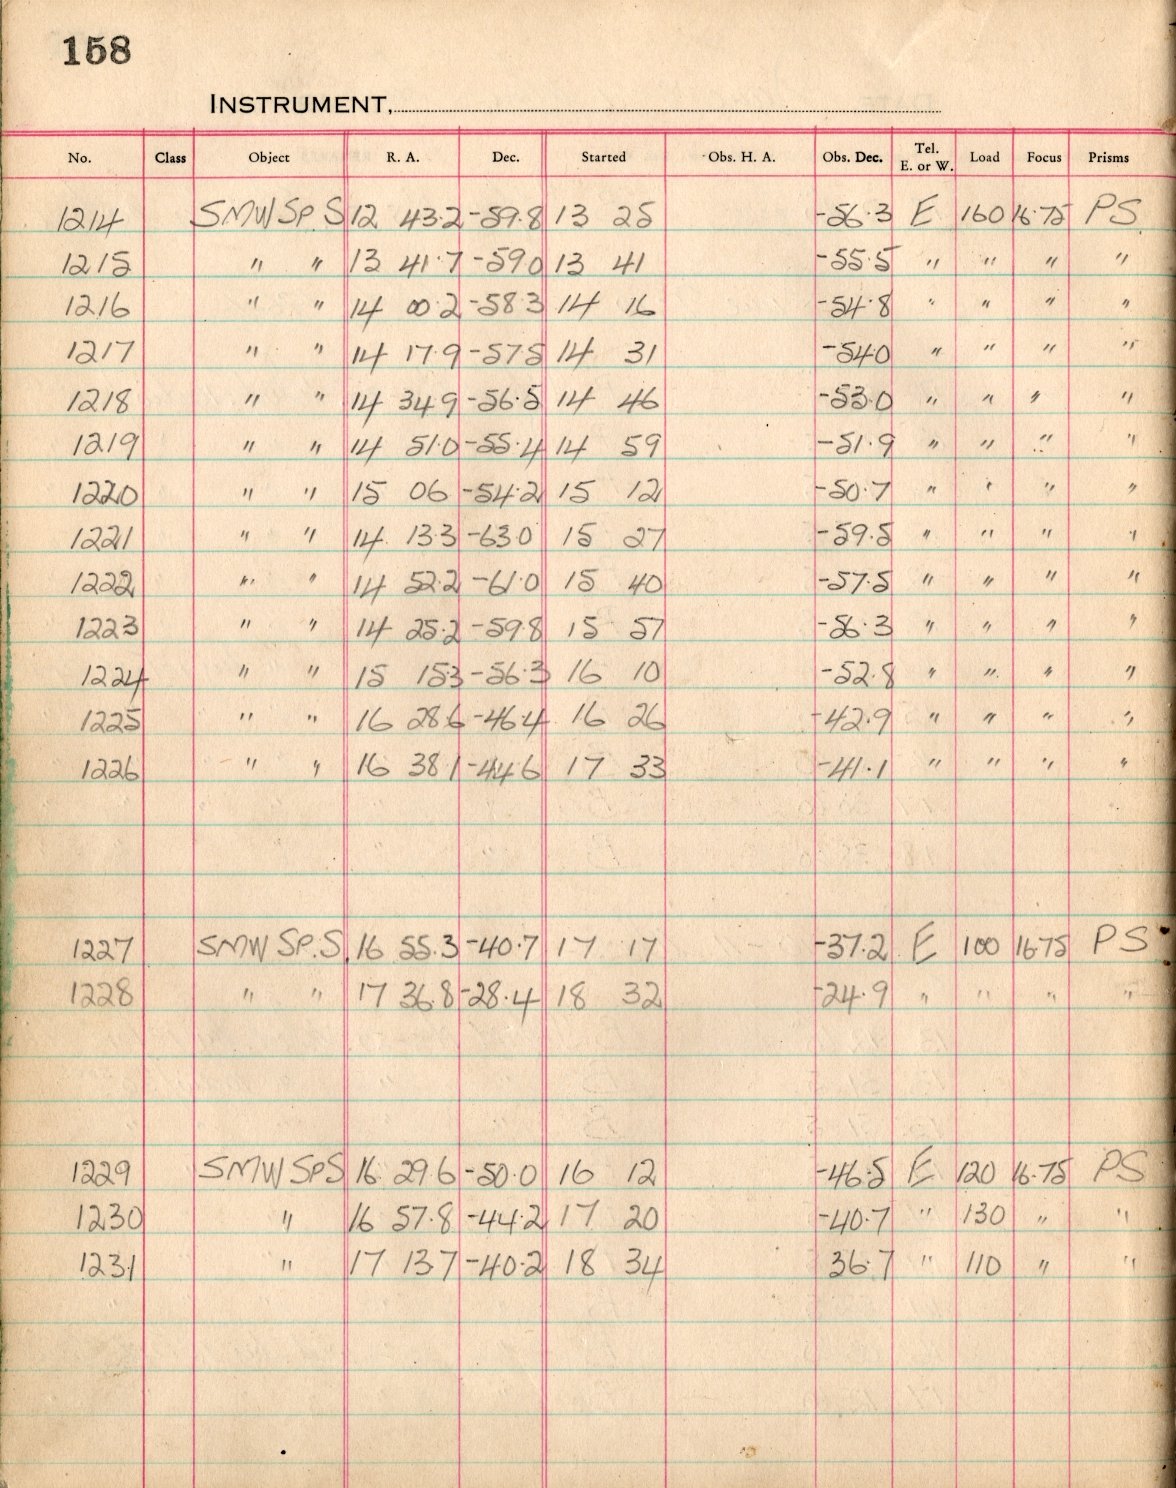 158
INSTRUMENT,
No. Class Object R. A. Dec. Started Obs. H. A. Obs. Dec. Tel. E. or W. Load Focus Prisms
1214 SMW Sp. S 12 43.2 -59.8 13 25 -56.3 E 160 16.75 PS
1215 " " 13 41.7 -59 0 13 41 -55.5 " " " "
1216 " " 14 00.2 -58 3 14 16 -54.8 " " " "
1217 " " 14 17.9 -57 5 14 31 -54 0 " " " "
1218 " " 14 34 9 -56.5 14 46 -53.0 " " " "
1219 " " 14 51.0 -55.4 14 59 -51.9 " " " "
1220 " " 15 06 -54.2 15 12 -50.7 " " " "
1221 " " 14 13.3 -63 0 15 27 -59.5 " " " "
1222 " " 14 52.2 -61.0 15 40 -57.5 " " " "
1223 " " 14 25.2 -59.8 15 57 -56.3 " " " "
1224 " " 15 15.3 -56.3 16 10 -52.8 " " " "
1225 " " 16 28 6 -46 4 16 26 -42.9 " " " "
1226 " " 16 38 1 -44 6 17 33 -41.1 " " " "
1227 SMW SP. S. 16 55.3 -40.7 17 17 -37.2 E 100 16.75 PS
1228 " " 17 36.8 -28.4 18 32 -24.9 " " " "
1229 SMW SPS 16 29 6 -50.0 16 12 -46.5 E 120 16.75 PS
1230 " 16 57.8 -44.2 17 20 -40.7 " 130 " "
1231 " 17 13 7 -40.2 18 34 36.7 " 110 " "